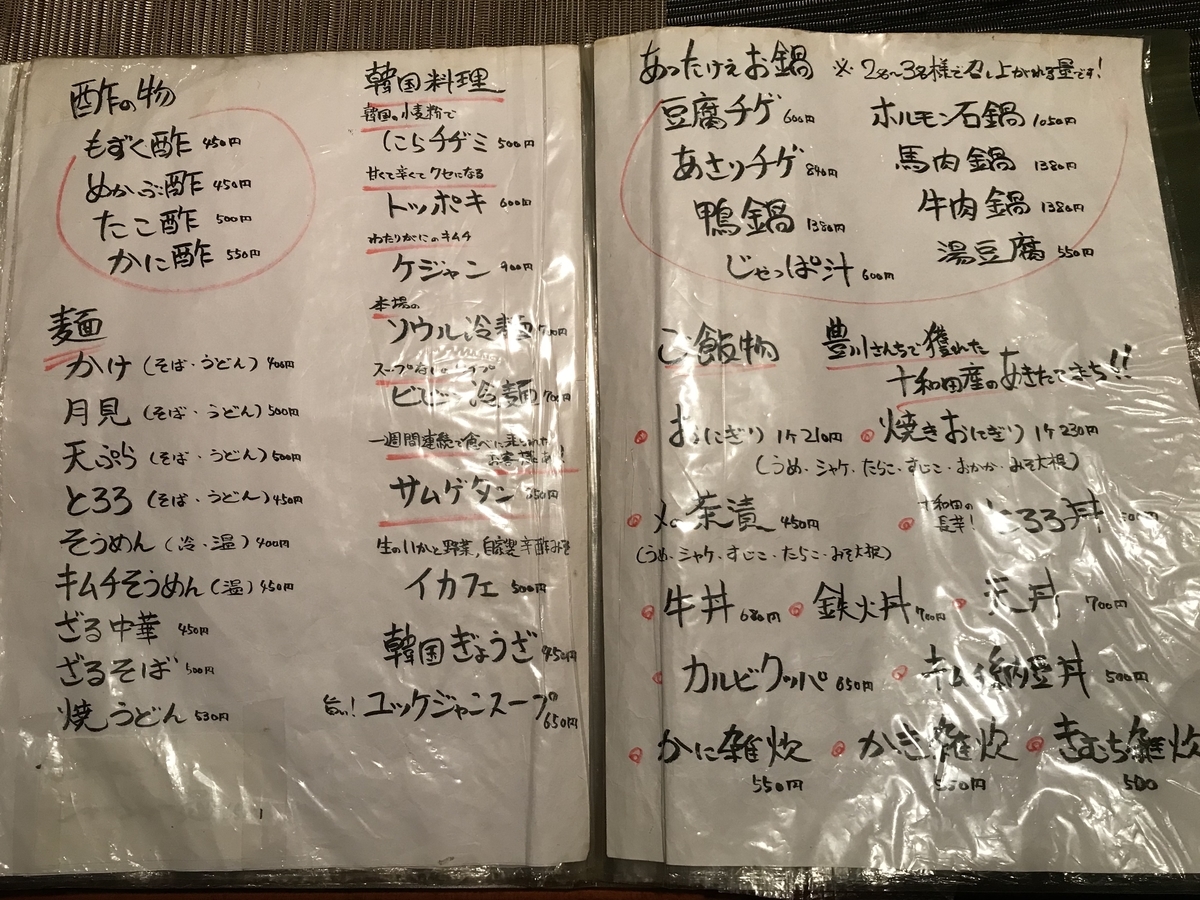 酢の物
もずく酢 450円
めかぶ酢 450円
たこ酢 500円
かに酢 550円
麺
かけ (そば・うどん) 400円
月見 (そば・うどん) 500円
天ぷら (そば・うどん) 500円
とろろ (そば・うどん) 450円
そうめん (冷・温) 400円
キムチそうめん (温) 450円
ざる中華 450円
ざるそば 500円
焼うどん 530円
韓国料理
韓国の小麦粉で
にらチヂミ 500円
甘くて辛くてクセになる
トッポキ 600円
わたりがにのキムチ
ケジャン 900円
本場の
ソウル冷麺 700円
スープ
ビビン冷麺 700円
一週間連続で食べに来られた
お客様あり!
サムゲタン
生のいかと野菜、自家製辛酢みそ
イカフェ 500円
韓国ぎょうざ 450円
旨い! ユッケジャンスープ 650円
あったけえお鍋 ※2名〜3名様で召し上がれる量です!
豆腐チゲ 600円
ホルモン石鍋 1050円
あさりチゲ 840円
馬肉鍋 1380円
鴨鍋 1380円
牛肉鍋 1380円
じゃっぱ汁 600円
湯豆腐 550円
ご飯物
豊川さんちで獲れた
十和田産のあきたこまち!!
おにぎり 1ケ210円
焼きおにぎり 1ケ230円
(うめ・シャケ・たらこ・すじこ・おかか・みそ大根)
茶漬 450円
十和田の
長芋!
とろろ丼
(うめ・シャケ・すじこ・たらこ・みそ大根)
牛丼 680円
鉄火丼 700円
天丼 700円
カルビクッパ 650円
キムチ納豆丼 500円
かに雑炊
550円
かき雑炊
550円
きむち雑炊
500